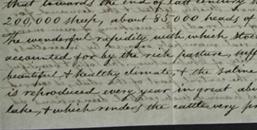 that towards the end of last century
200,000 sheep, about 35000 heads of
The wonderful rapidity with which stoc
accounted for by the rich pasture, suff
beautiful & healthy climate, & the saline
is reproduced every year in great abu
lake, & which renders the cattle very pr